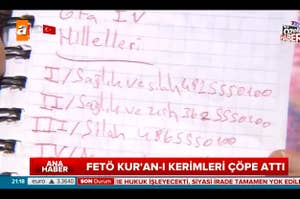 Hilleleri
I/Sağlık ve silah 4825550100
II/Sağlık ve zırh 3625550100
III/Silah 4865550100
IV/
ANA HABER
FETÖ KUR'AN-I KERİMLERİ ÇÖPE ATTI
21:18
3.3640
E HUKUK İŞLEYECEKTİ, SİYASİ İRADE TAMAMEN YOK EDİL